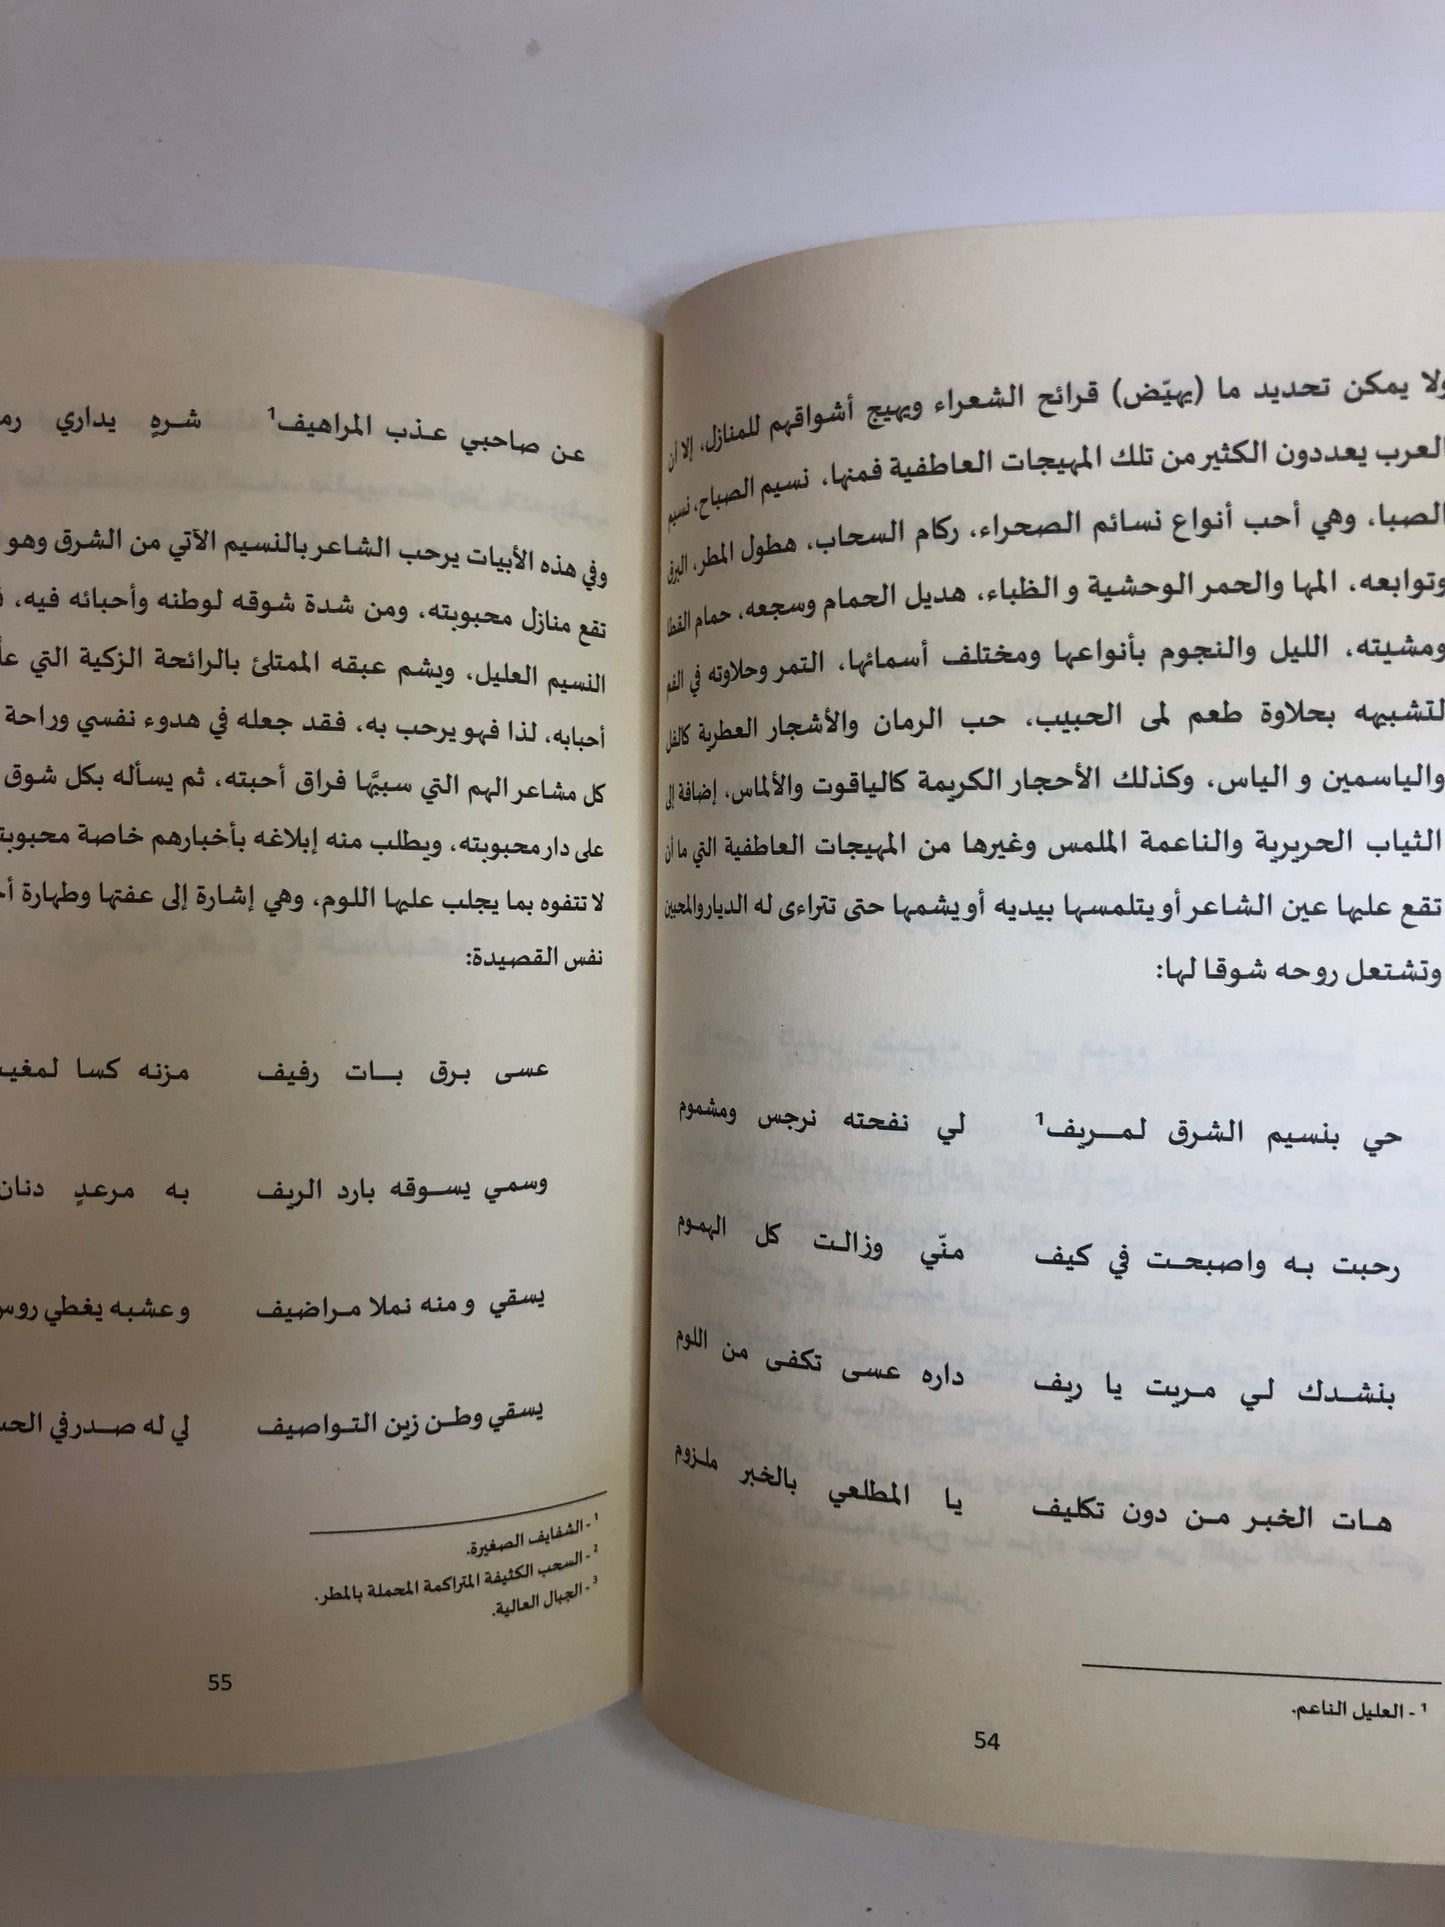 ولا يمكن تحديد ما (يهيّض) قرائح الشعراء ويهيج أشواقهم للمنازل، إلا أن
العرب يعددون الكثير من تلك المهيجات العاطفية فمنها، نسيم الصباح، نسيم
الصبا، وهي أحب أنواع نسائم الصحراء، ركام السحاب، هطول المطر، البرق
وتوابعه، المها والحمر الوحشية و الظباء، هديل الحمام وسجعه، حمام القطا
ومشيته، الليل والنجوم بأنواعها ومختلف أسمائها، التمر وحلاوته في الفم
لتشبيهه بحلاوة طعم لمى الحبيب، حب الرمان والأشجار العطرية كالفل
والياسمين و الياس، وكذلك الأحجار الكريمة كالياقوت والألماس، إضافة إلى
الثياب الحريرية والناعمة الملمس وغيرها من المهيجات العاطفية التي ما أن
تقع عليها عين الشاعر أو يتلمسها بيديه أو يشمها حتى تتراءى له الديار والمحبين
وتشتعل روحه شوقا لها:
حي بنسيم الشرق لمريف¹ لي نفحته نرجس ومشموم
رحبت به واصبحت في كيف منّي وزالت كل الهموم
بنشدك لي مريت يا ريف داره عسى تكفى من اللوم
هات الخبر من دون تكليف يا المطلعي بالخبر ملزوم
¹ - العليل الناعم.
54
عن صاحبي عذب المراهيف¹ شرهٍ يداري
وفي هذه الأبيات يرحب الشاعر بالنسيم الآتي من الشرق وهو
تقع منازل محبوبته، ومن شدة شوقه لوطنه وأحبائه فيه،
النسيم العليل، ويشم عبقه الممتلئ بالرائحة الزكية التي
أحبابه، لذا فهو يرحب به، فقد جعله في هدوء نفسي وراحة
كل مشاعر الهم التي سببَّها فراق أحبته، ثم يسأله بكل شوق
على دار محبوبته، ويطلب منه إبلاغه بأخبارهم خاصة
لا تتفوه بما يجلب عليها اللوم، وهي إشارة إلى عفتها وطهارة
نفس القصيدة:
عسى برق بات رفيف مزنه كسا
وسمي يسوقه بارد الريف به مرعدٍ
يسقي ومنه نملا مراضيف وعشبه يغطي
يسقي وطن زين التواصيف لي له صدر في
¹ - الشفايف الصغيرة.
² - السحب الكثيفة المتراكمة المحملة بالمطر.
³ - الجبال العالية.
55